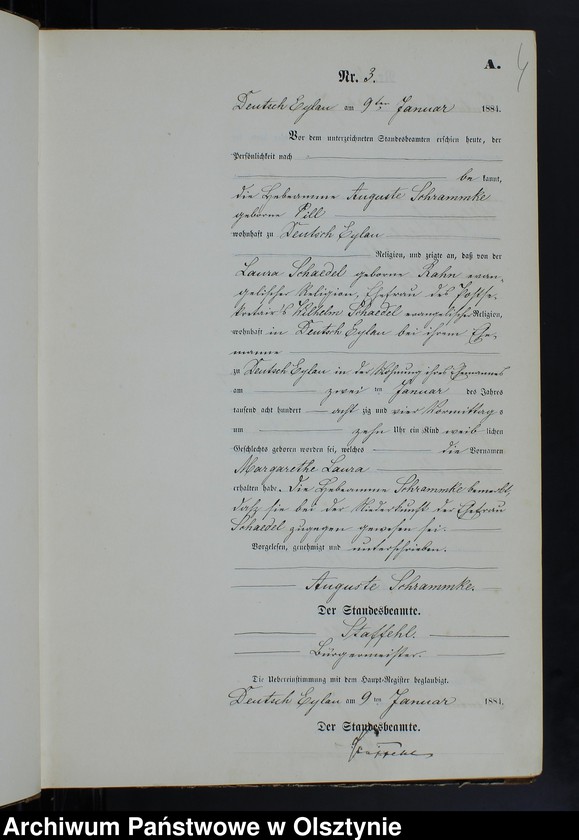 A.
Nr. 3.
Deutsch Eylau am 9ten Januar 1884.
Vor dem unterzeichneten Standesbeamten erschien heute, der
Persönlichkeit nach
be kannt,
die Hebeamme Auguste Schrammke
geborne Pill
wohnhaft zu Deutsch Eylau
Religion, und zeigte an, daß von der
Laura Schaedel geborne Rahn evan-
gelischer Religion, Ehefrau des Postse-
kretair's Wilhelm Schaedel evangelischer Religion,
wohnhaft in Deutsch Eylau bei ihrem Ehe-
manne
zu Deutsch Eylau in der Wohnung ihres Ehemannes
am zwei ten Januar des Jahres
tausend acht hundert acht zig und vier Vormittags
um zehn Uhr ein Kind weib lichen
Geschlechts geboren worden sei, welches die Vornamen
Margarethe Laura
erhalten habe. Die Hebeamme Schrammke bemerkt,
daß sie bei der Niederkunft der Ehefrau
Schaedel zugegen gewesen sei.
Vorgelesen, genehmigt und unterschrieben.
Auguste Schrammke.
Der Standesbeamte.
Staffehl.
Bürgermeister.
Die Uebereinstimmung mit dem Haupt-Register beglaubigt.
Deutsch Eylau am 9 ten Januar 1884.
Der Standesbeamte.
Staffehl
Archiwum Państwowe w Olsztynie